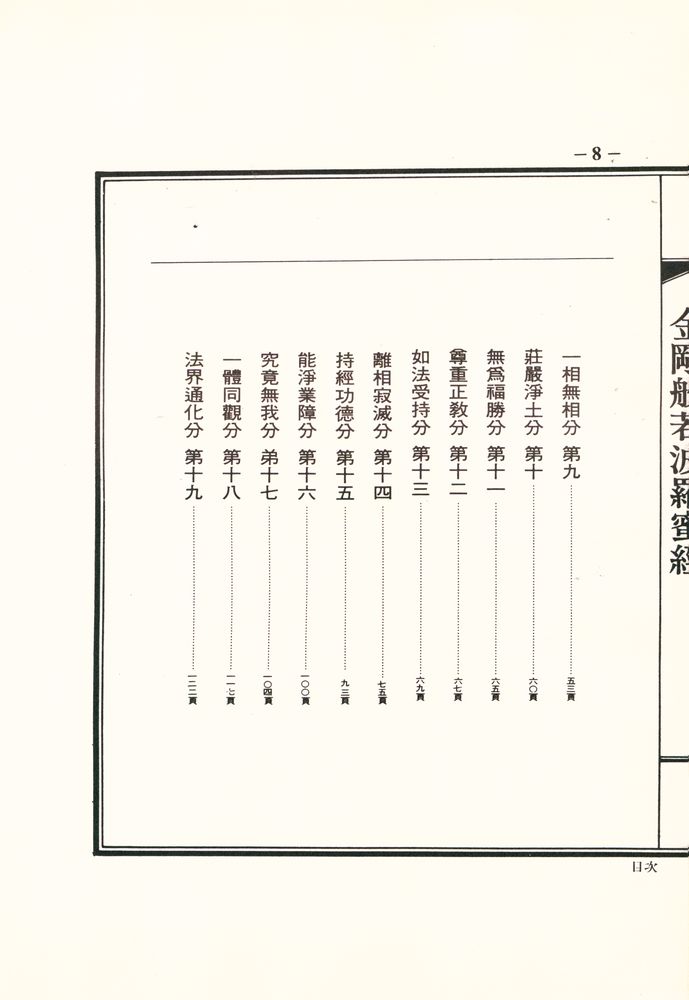 －8－
金剛般若波羅蜜經
一相無相分 第九 五三頁
莊嚴淨土分 第十 六〇頁
無為福勝分 第十一 六五頁
尊重正教分 第十二 六七頁
如法受持分 第十三 六九頁
離相寂滅分 第十四 七五頁
持經功德分 第十五 九三頁
能淨業障分 第十六 一〇〇頁
究竟無我分 弟十七 一〇四頁
一體同觀分 第十八 一一七頁
法界通化分 第十九 一二二頁
目次